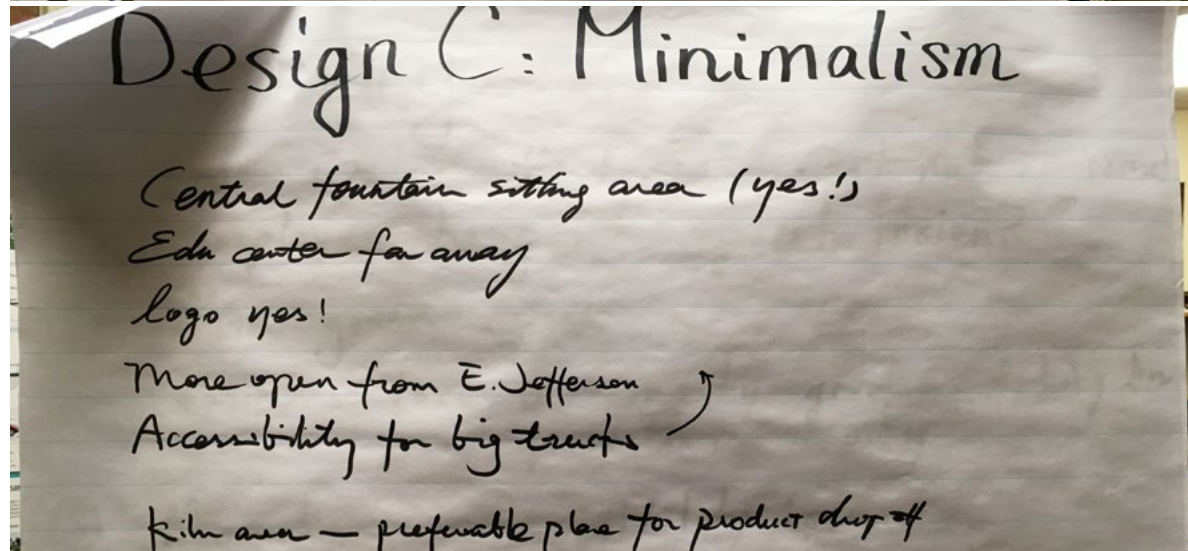 Design C: Minimalism
Central fountain sitting area (yes!)
Edu center far away
logo yes!
More open from E. Jefferson
Accessibility for big trucks
kiln area — preferable place for product drop off